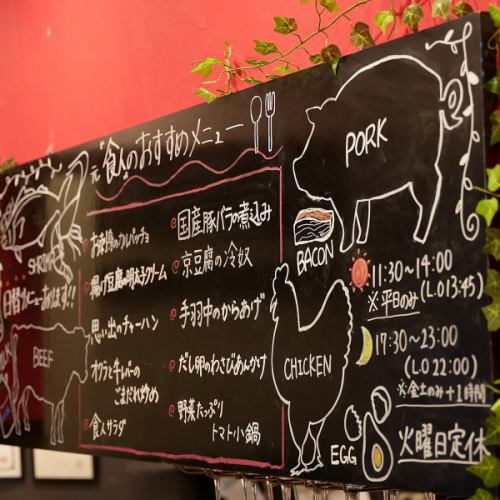 元"食人"のおすすめメニュー
お刺身のカルパッチョ
揚げ豆腐の明太クリーム
思い出のチャーハン
オクラとチャーシューの
ごまだれ炒め
食人サラダ
国産豚バラの煮込み
京豆腐の冷奴
手羽中のからあげ
だし卵のわさびあんかけ
野菜たっぷり
トマト小鍋
SHRIMP
日替りメニューあります!!
BEEF
PORK
BACON
CHICKEN
EGG
11:30~14:00
※平日のみ (L.O 13:45)
17:30~23:00
(L.O 22:00)
※金土のみ+1時間
火曜日定休